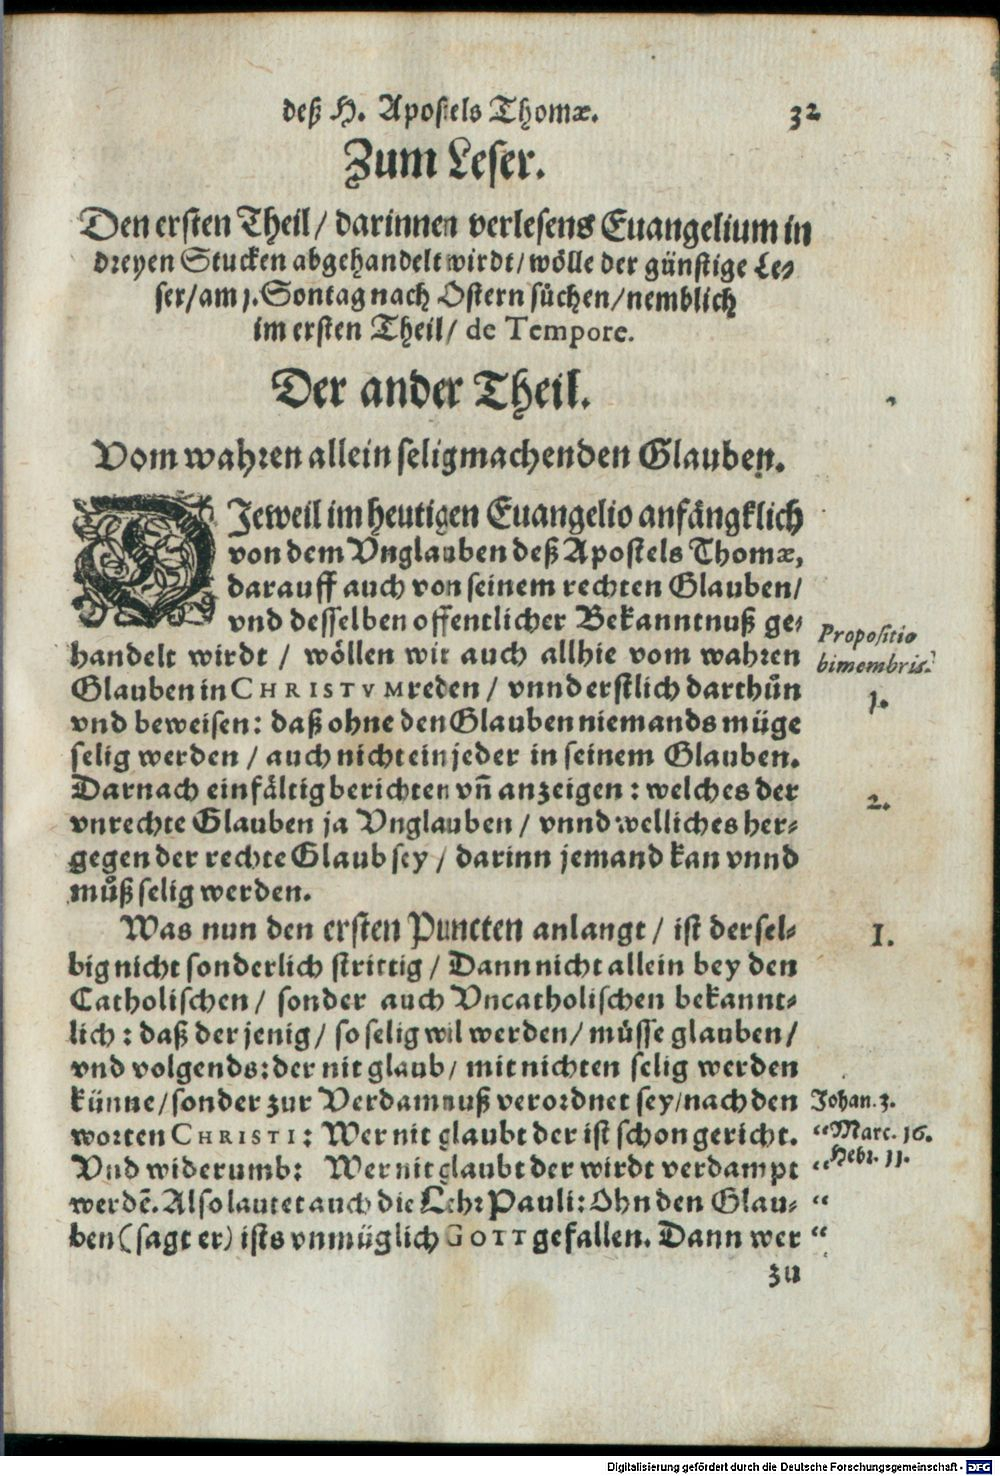 deß H. Apostels Thomæ. 32
Zum Leser.
Den ersten Theil/ darinnen verlesens Euangelium in
dreyen Stucken abgehandelt wirdt/ wölle der günstige Le-
ser/ am 1. Sontag nach Ostern suͤchen/ nemblich
im ersten Theil/ de Tempore.
Der ander Theil.
Vom wahren allein seligmachenden Glauben.
DJeweil im heutigen Euangelio anfängklich
von dem Vnglauben deß Apostels Thomæ,
darauff auch von seinem rechten Glauben/
vnd desselben offentlicher Bekanntnuß ge-
handelt wirdt / wöllen wir auch allhie vom wahren
Glauben in CHRISTVM reden / vnnd erstlich darthuͤn
vnd beweisen: daß ohne den Glauben niemands müge
selig werden / auch nicht ein jeder in seinem Glauben.
Darnach einfältig berichten vñ anzeigen : welches der
vnrechte Glauben ja Vnglauben / vnnd welliches her-
gegen der rechte Glaub sey / darinn jemand kan vnnd
muͦß selig werden.
Propositio
bimembris.
1.
2.
Was nun den ersten Puncten anlangt / ist dersel-
big nicht sonderlich strittig / Dann nicht allein bey den
Catholischen / sonder auch Vncatholischen bekannt-
lich : daß der jenig / so selig wil werden / müsse glauben /
vnd volgends: der nit glaub / mit nichten selig werden
künne / sonder zur Verdamnuß verordnet sey / nach den
worten CHRISTI: Wer nit glaubt der ist schon gericht.
Vnd widerumb: Wer nit glaubt der wirdt verdampt
werdẽ. Also lautet auch die Lehr Pauli: Ohn den Glau-
ben (sagt er) ists vnmüglich GOTT gefallen. Dann wer
zu
I.
Johan. 3.
“Marc. 16.
“Hebr. 11.
“
“
Digitalisierung gefördert durch die Deutsche Forschungsgemeinschaft - DFG